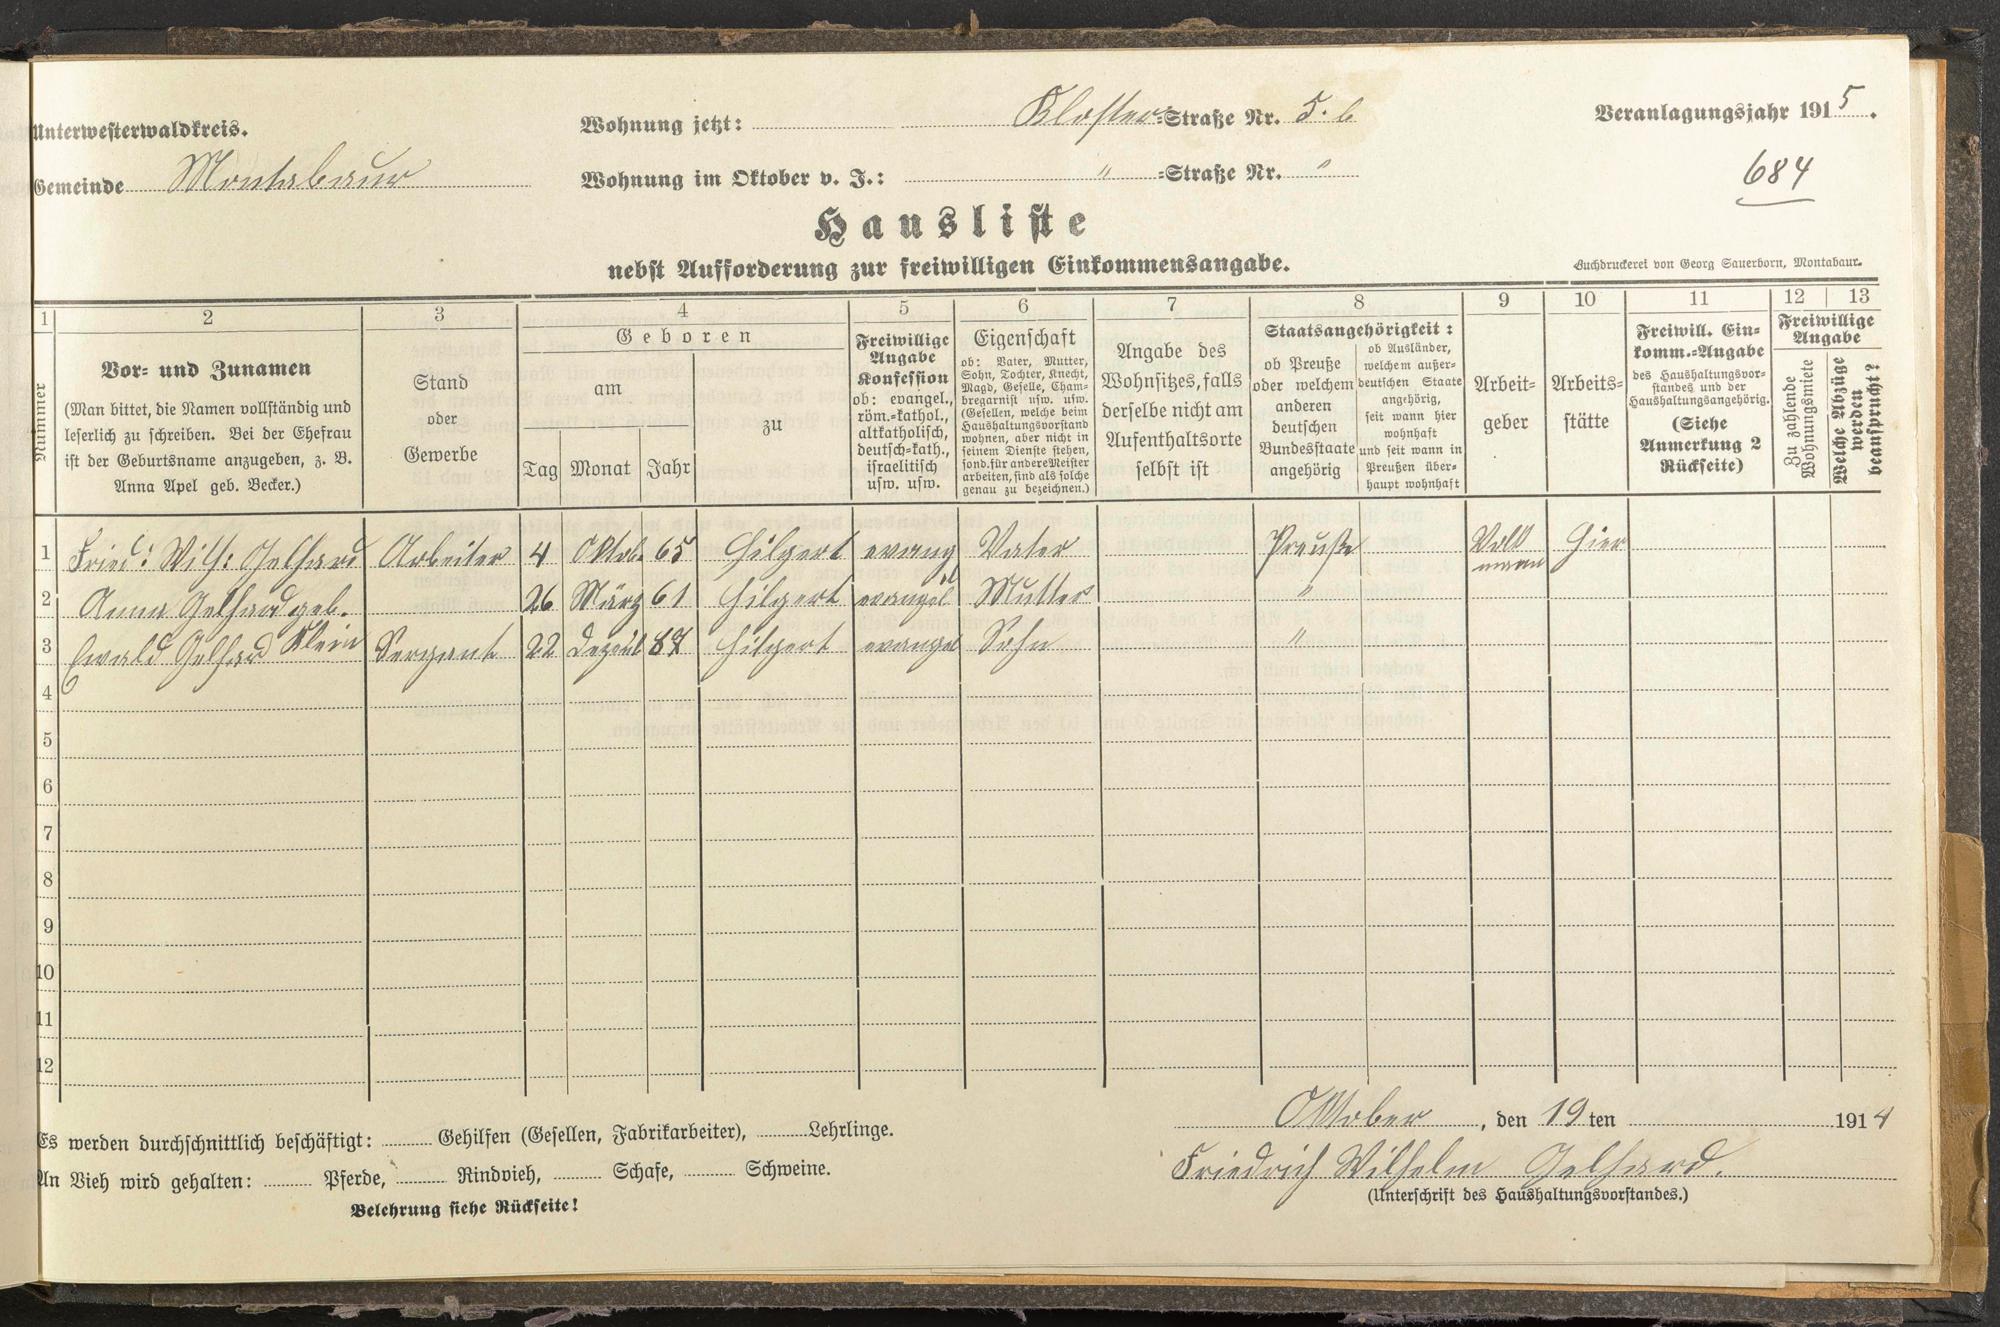 Unterwesterwaldkreis.
Gemeinde Montabaur
Wohnung jetzt: Kloster-Straße Nr. 5. b
Wohnung im Oktober v. J.: " -Straße Nr. "
Veranlagungsjahr 1915.
684
Hausliste
nebst Aufforderung zur freiwilligen Einkommensangabe.
Buchdruckerei von Georg Sauerborn, Montabaur.
1 2 3 4 5 6 7 8 9 10 11 12 13
Nummer
Vor- und Zunamen
(Man bittet, die Namen vollständig und
leserlich zu schreiben. Bei der Ehefrau
ist der Geburtsname anzugeben, z. B.
Anna Apel geb. Becker.)
Stand
oder
Gewerbe
Geboren
am
Tag Monat Jahr
zu
Freiwillige
Angabe
Konfession
ob: evangel.,
röm.-kathol.,
altkatholisch,
deutsch-kath.,
israelitisch
usw. usw.
Eigenschaft
ob: Vater, Mutter,
Sohn, Tochter, Knecht,
Magd, Geselle, Cham-
bregarnist usw. usw.
(Gesellen, welche beim
Haushaltungsvorstand
wohnen, aber nicht in
seinem Dienste stehen,
sond. für andere Meister
arbeiten, sind als solche
genau zu bezeichnen.)
Angabe des
Wohnsitzes, falls
derselbe nicht am
Aufenthaltsorte
selbst ist
Staatsangehörigkeit:
ob Preuße
oder welchem
anderen
deutschen
Bundesstaate
angehörig
ob Ausländer,
welchem außer-
deutschen Staate
angehörig,
seit wann hier
wohnhaft
und seit wann in
Preußen über-
haupt wohnhaft
Arbeit-
geber
Arbeits-
stätte
Freiwill. Ein-
komm.-Angabe
des Haushaltungsvor-
standes und der
Haushaltungsangehörig.
(Siehe
Anmerkung 2
Rückseite)
Freiwillige
Angabe
Zu zahlende
Wohnungsmiete
Welche Abzüge
werden
beansprucht?
1 Fried: Wilh: Gelhard Arbeiter 4 Oktob. 65 Hilgert evang Vater Preuße Voll Hier
mann
2 Anna Gelhard geb. 26 März 61 Hilgert evangel Mutter "
Klein
3 Ewald Gelhard Sergant 22 Dezemb 87 Hilgert evangel Sohn "
4
5
6
7
8
9
10
11
12
Es werden durchschnittlich beschäftigt: Gehilfen (Gesellen, Fabrikarbeiter), Lehrlinge.
An Vieh wird gehalten: Pferde, Rindvieh, Schafe, Schweine.
Belehrung siehe Rückseite!
Oktober, den 19 ten 1914
Friedrich Wilhelm Gelhard.
(Unterschrift des Haushaltungsvorstandes.)